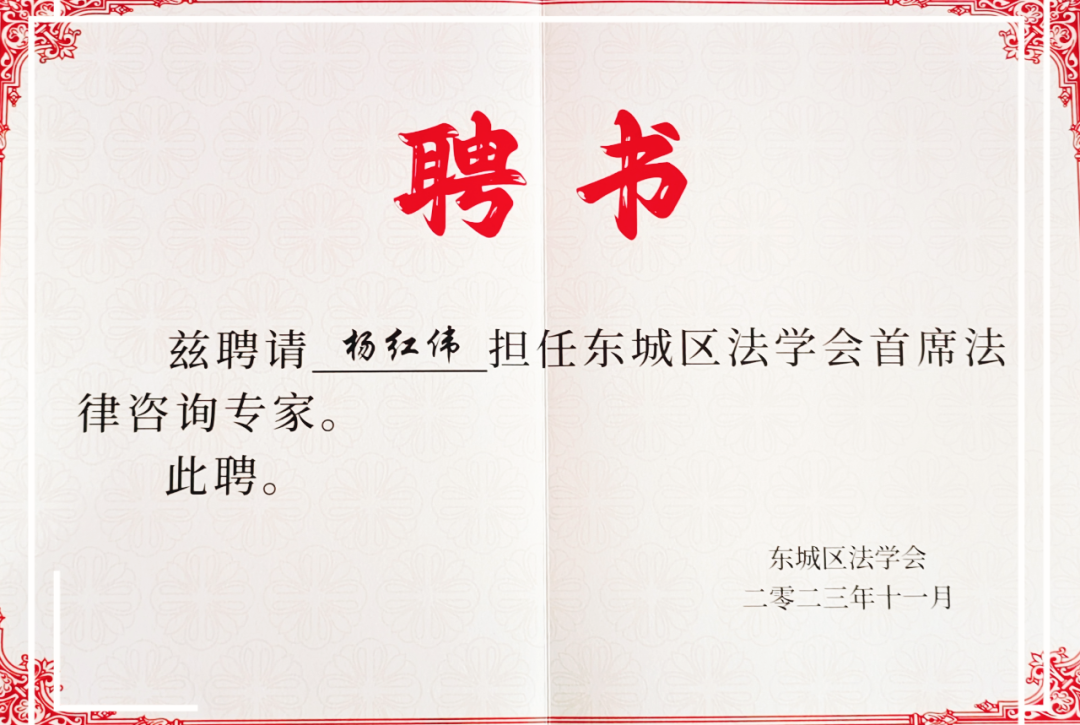 聘书
兹聘请 杨红伟 担任东城区法学会首席法
律咨询专家。
此聘。
东城区法学会
二零二三年十一月